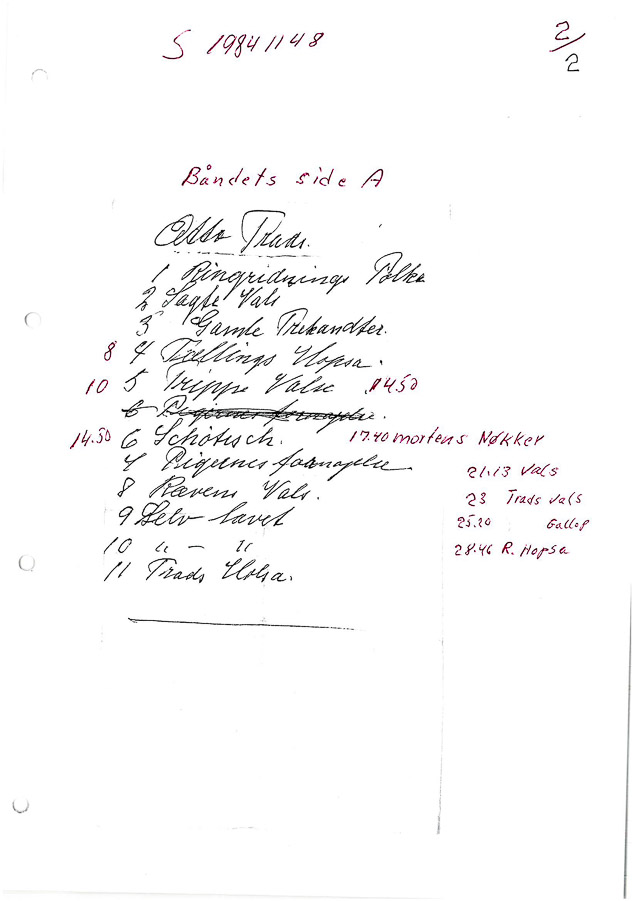 S 19841148
2/2
Båndets side A
Otto Trads.
1 Ringridnings Polka
2 Sagte Vals
3 Gamle Trekandter.
8 4 Tvellings Hopsa.
10 5 Trippe Valse 14.50
6 Pigernes fornøjelse.
14.50 6 Schotisch. 17.40 mortens Nøkker
7 Pigernes fornøjelse
21.13 Vals
8 Rævens Vals.
23 Trads Vals
9 Selv lavet
25.20 Gallop
10 " — "
28.46 R. Hopsa
11 Trads Hopsa.